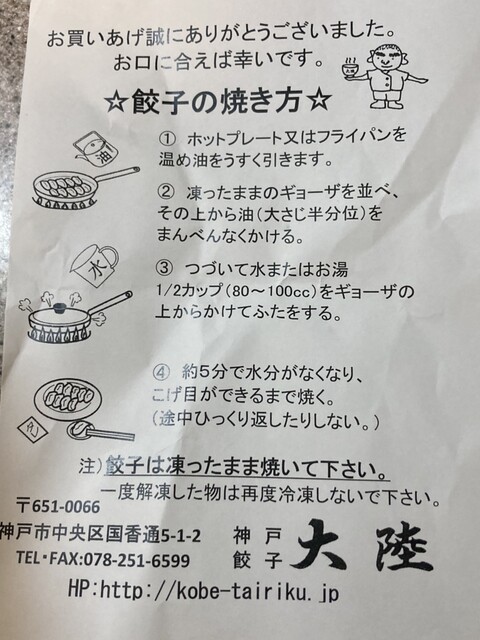 お買いあげ誠にありがとうございました。
お口に合えば幸いです。
☆餃子の焼き方☆
① ホットプレート又はフライパンを
温め油をうすく引きます。
油
② 凍ったままのギョーザを並べ、
その上から油（大さじ半分位）を
まんべんなくかける。
水
③ つづいて水またはお湯
1/2カップ（80～100cc）をギョーザの
上からかけてふたをする。
④ 約5分で水分がなくなり、
こげ目ができるまで焼く。
（途中ひっくり返したりしない。）
注）餃子は凍ったまま焼いて下さい。
一度解凍した物は再度冷凍しないで下さい。
〒651-0066
神戸市中央区国香通5-1-2
TEL・FAX:078-251-6599
神戸
餃子
大陸
HP:http://kobe-tairiku.jp